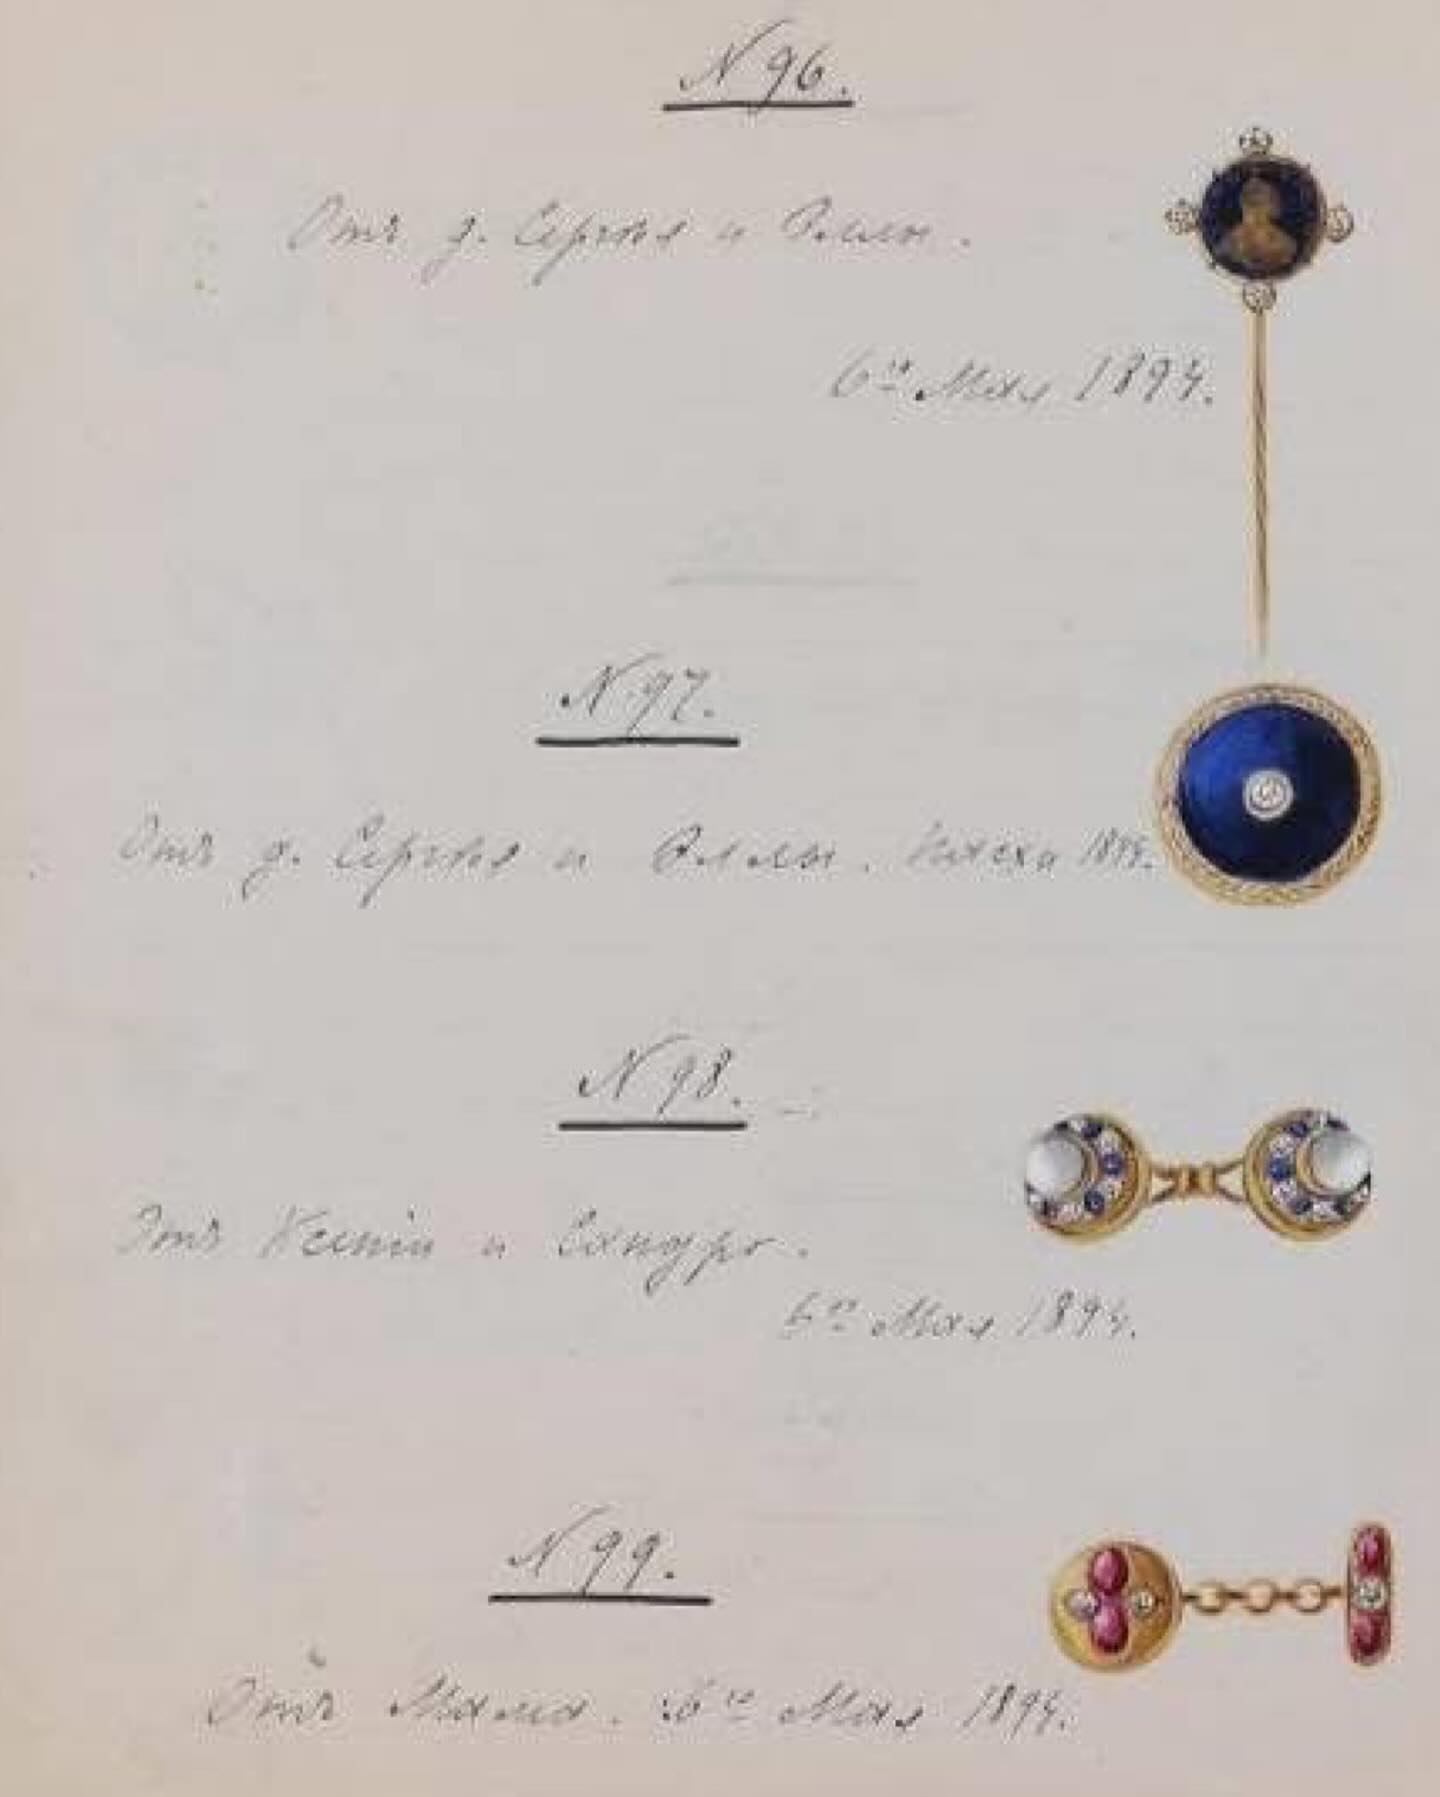 N 96.
Отъ д. Сергѣя и Эллы.
6го Мая 1894.
N 97.
Отъ д. Сергѣя и Эллы. Пасха 1894.
N 98.
Отъ Ксеніи и Сандро.
6го Мая 1894.
N 99.
Отъ Мама. 6го Мая 1894.